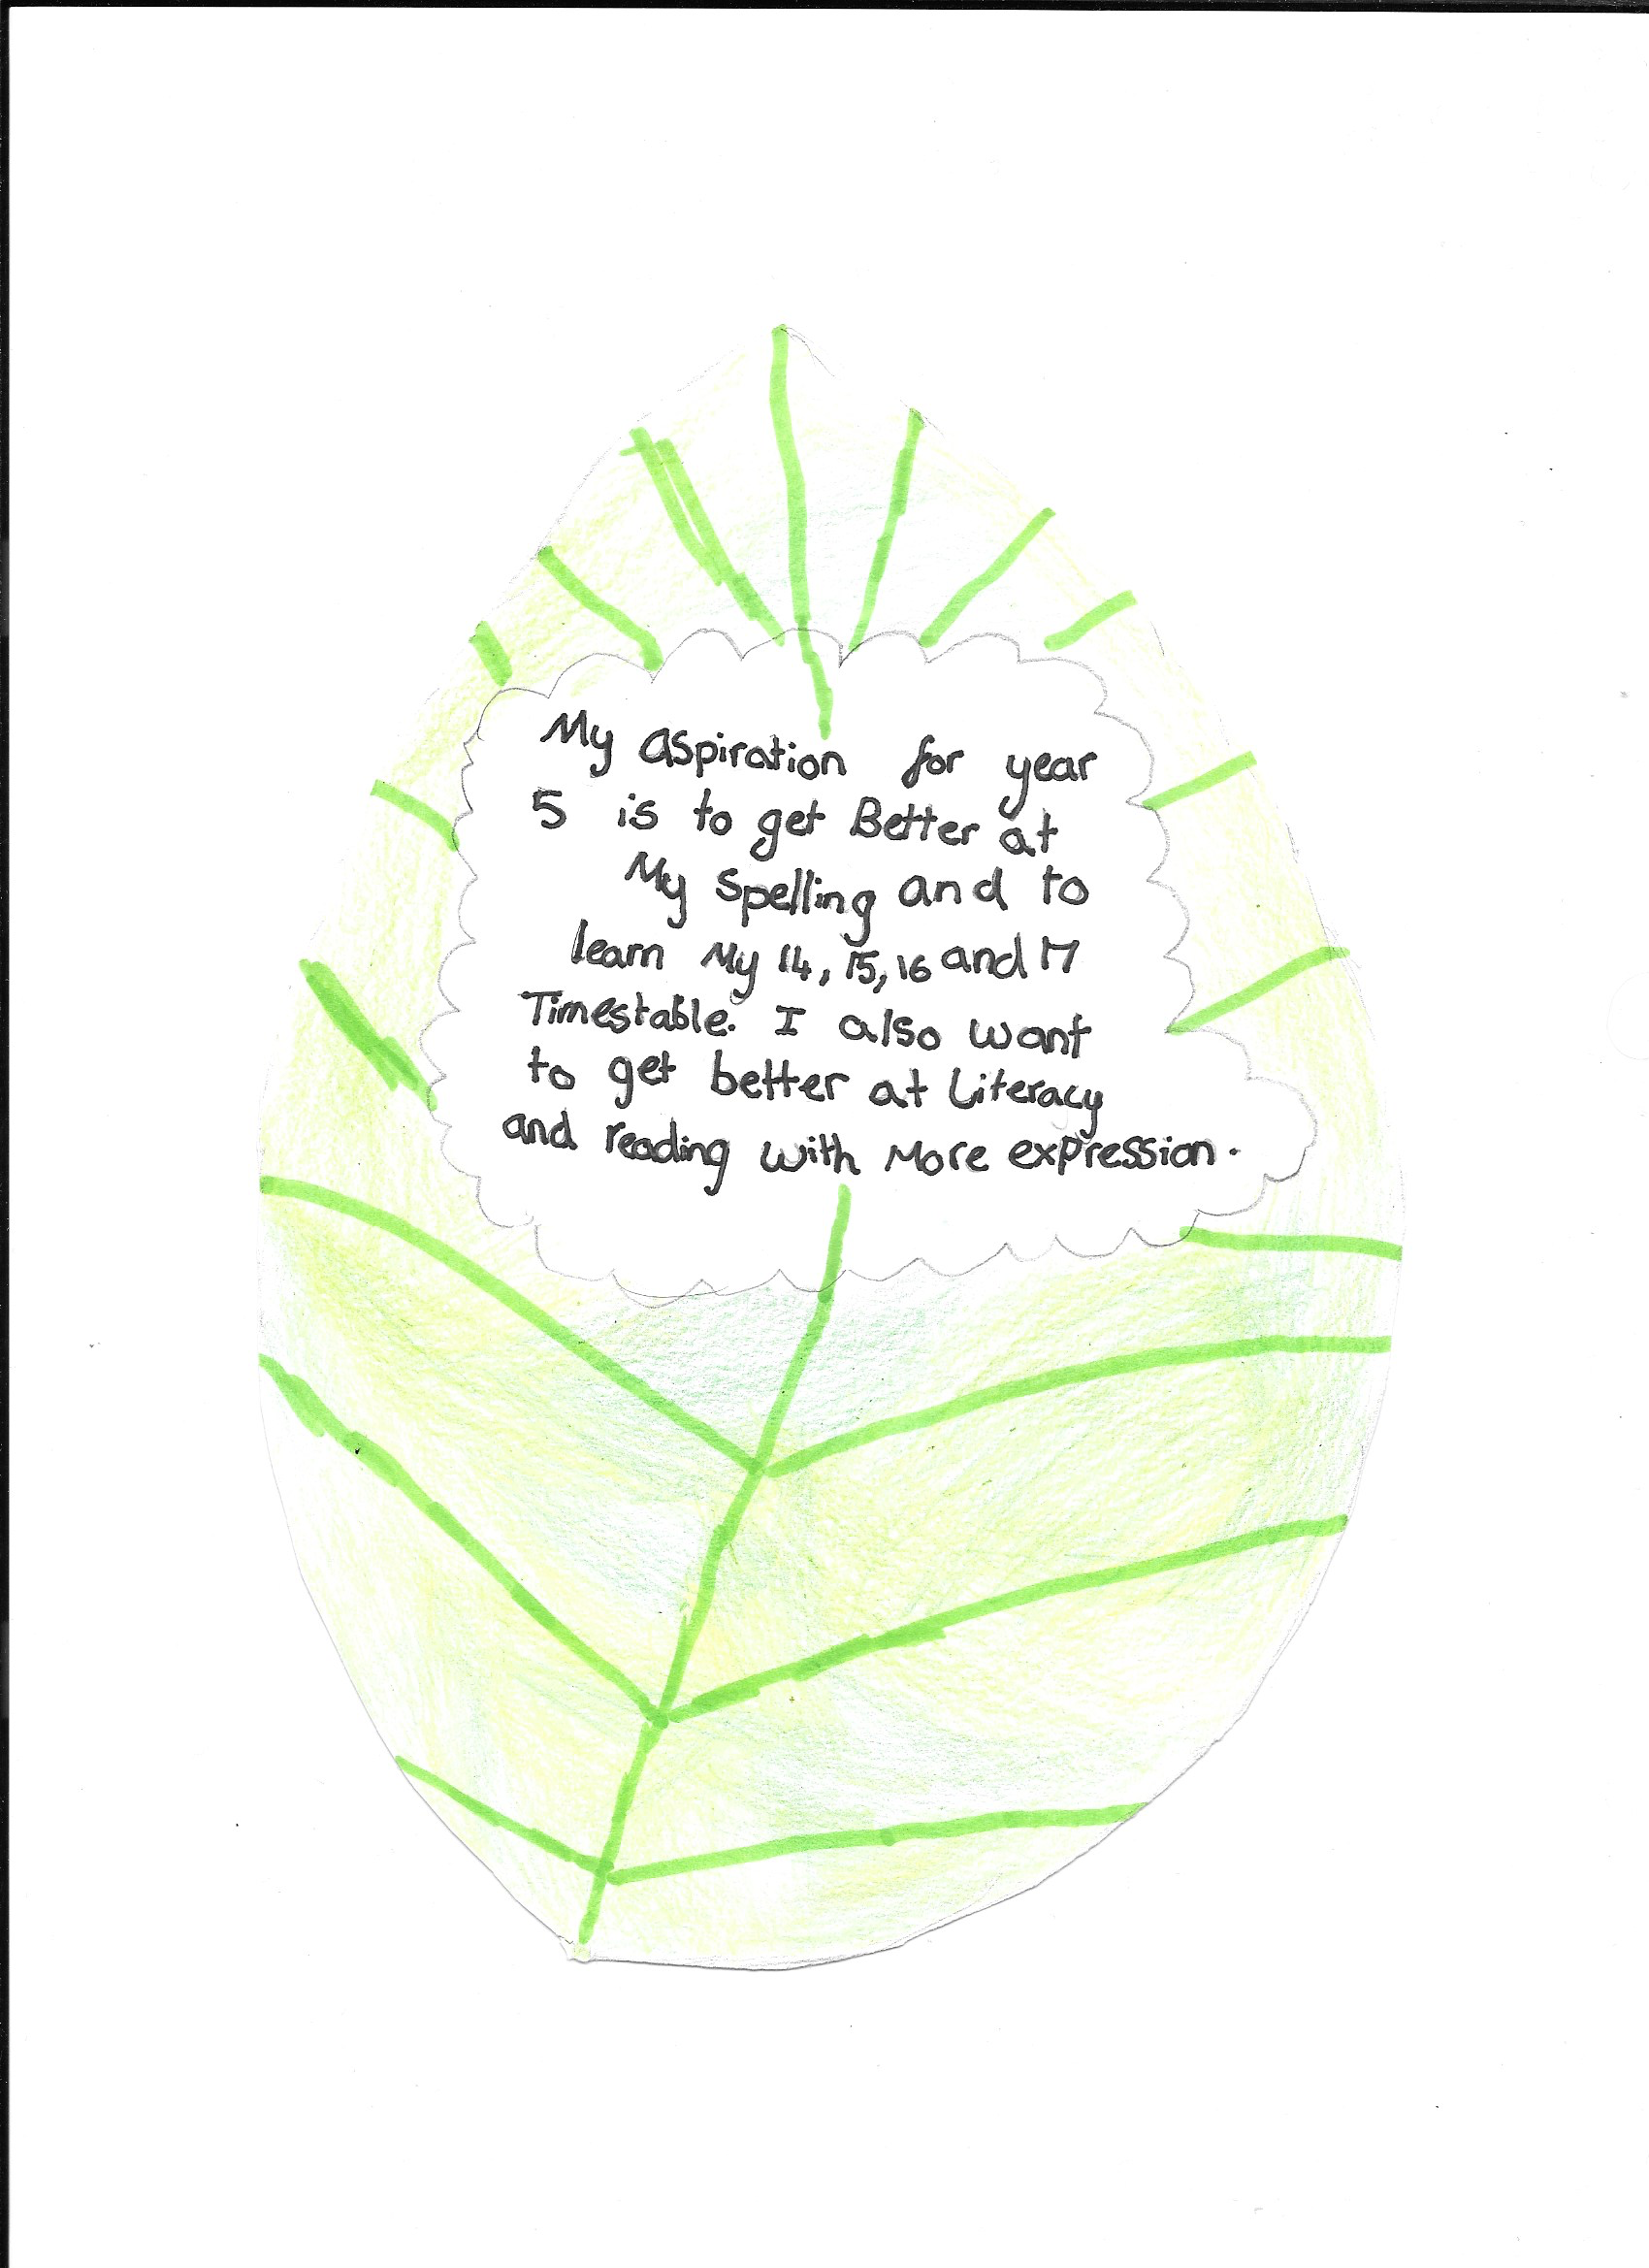 My aspiration for year
5 is to get Better at
My spelling and to
learn My 14, 15, 16 and 17
Timestable. I also want
to get better at Literacy
and reading with More expression.